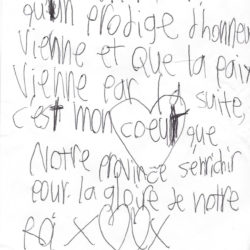 qu'un prodige d'honneur
Vienne et que la paix
Vienne par la suite,
c'est mon coeur que
Notre province senrichir
pour la gloire de notre
Roi xx